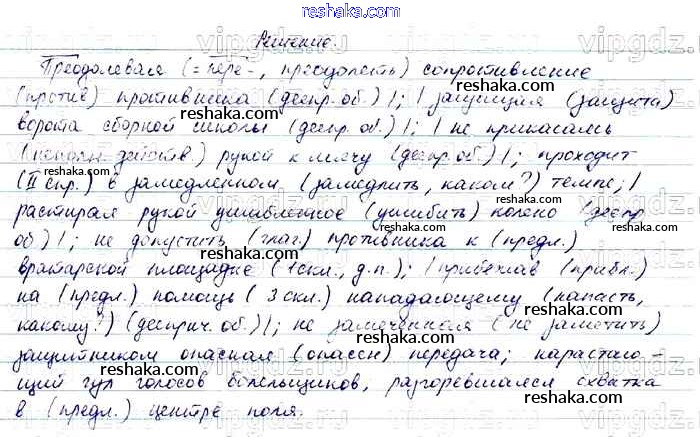 reshaka.com
Решение.
Преодолевая (= пере-, преодолеть) сопротивление
(против) противника (деепр. об.) |; | защищая (защита)
ворота сборной школы (деепр. об.) |; | не прикасаясь
действ.) рукой к мячу (деепр. об.) |; проходит
(II спр.) в замедленном (замедлить, каком?) темпе; |
растирая рукой ушибленное (ушибить) колено (деепр.
об.) |; не допустить (глаг.) противника к (предл.)
вратарской площадке (1 скл., д.п.); | прибежав (прибл.)
на (предл.) помощь (3 скл.) нападающему (напасть,
какому?) (дееприч. об.) |; не замеченная (не заметить)
защитником опасная (опасен) передача; нарастаю-
щий гул голосов болельщиков, разгоревшаяся схватка
в (предл.) центре поля.
reshaka.com